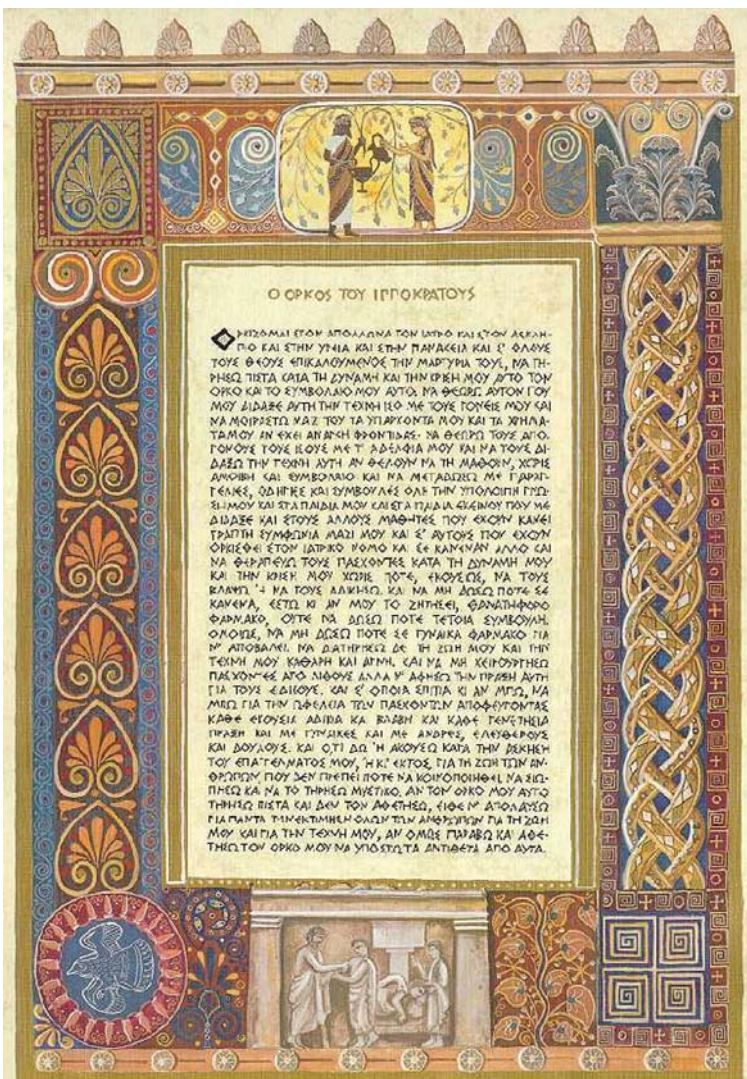 Ο ΟΡΚΟΣ ΤΟΥ ΙΠΠΟΚΡΑΤΟΥΣ
ΟΡΚΙΖΟΜΑΙ ΣΤΟΝ ΑΠΟΛΛΩΝΑ ΤΟΝ ΙΑΤΡΟ ΚΑΙ ΣΤΟΝ ΑΣΚΛΗ-
ΠΙΟ ΚΑΙ ΣΤΗΝ ΥΓΕΙΑ ΚΑΙ ΣΤΗΝ ΠΑΝΑΚΕΙΑ ΚΑΙ Σ' ΟΛΟΥΣ
ΤΟΥΣ ΘΕΟΥΣ ΕΠΙΚΑΛΟΥΜΕΝΟΣ ΤΗΝ ΜΑΡΤΥΡΙΑ ΤΟΥΣ, ΝΑ ΤΗ-
ΡΗΣΩ ΠΙΣΤΑ ΚΑΤΑ ΤΗ ΔΥΝΑΜΗ ΚΑΙ ΤΗΝ ΚΡΙΣΗ ΜΟΥ ΑΥΤΟ ΤΟΝ
ΟΡΚΟ ΚΑΙ ΤΟ ΣΥΜΒΟΛΑΙΟ ΜΟΥ ΑΥΤΟ. ΝΑ ΘΕΩΡΩ ΑΥΤΟΝ ΠΟΥ
ΜΟΥ ΔΙΔΑΞΕ ΑΥΤΗ ΤΗΝ ΤΕΧΝΗ ΙΣΟ ΜΕ ΤΟΥΣ ΓΟΝΕΙΣ ΜΟΥ ΚΑΙ
ΝΑ ΜΟΙΡΑΣΤΩ ΜΑΖΙ ΤΟΥ ΤΑ ΥΠΑΡΧΟΝΤΑ ΜΟΥ ΚΑΙ ΤΑ ΧΡΗΜΑ-
ΤΑ ΜΟΥ ΑΝ ΕΧΕΙ ΑΝΑΓΚΗ ΦΡΟΝΤΙΔΑΣ. ΝΑ ΘΕΩΡΩ ΤΟΥΣ ΑΠΟ-
ΓΟΝΟΥΣ ΤΟΥΣ ΙΣΟΥΣ ΜΕ Τ' ΑΔΕΛΦΙΑ ΜΟΥ ΚΑΙ ΝΑ ΤΟΥΣ ΔΙ-
ΔΑΞΩ ΤΗΝ ΤΕΧΝΗ ΑΥΤΗ ΑΝ ΘΕΛΟΥΝ ΝΑ ΤΗ ΜΑΘΟΥΝ, ΧΩΡΙΣ
ΑΜΟΙΒΗ ΚΑΙ ΣΥΜΒΟΛΑΙΟ ΚΑΙ ΝΑ ΜΕΤΑΔΩΣΩ ΜΕ ΠΑΡΑΓ-
ΓΕΛΙΕΣ, ΟΔΗΓΙΕΣ ΚΑΙ ΣΥΜΒΟΥΛΕΣ ΟΛΗ ΤΗΝ ΥΠΟΛΟΙΠΗ ΓΝΩ-
ΣΗ ΜΟΥ ΚΑΙ ΣΤΑ ΠΑΙΔΙΑ ΜΟΥ ΚΑΙ ΣΤΑ ΠΑΙΔΙΑ ΕΚΕΙΝΟΥ ΠΟΥ ΜΕ
ΔΙΔΑΞΕ ΚΑΙ ΣΤΟΥΣ ΑΛΛΟΥΣ ΜΑΘΗΤΕΣ ΠΟΥ ΕΧΟΥΝ ΚΑΝΕΙ
ΓΡΑΠΤΗ ΣΥΜΦΩΝΙΑ ΜΑΖΙ ΜΟΥ ΚΑΙ Σ' ΑΥΤΟΥΣ ΠΟΥ ΕΧΟΥΝ
ΟΡΚΙΣΘΕΙ ΣΤΟΝ ΙΑΤΡΙΚΟ ΝΟΜΟ ΚΑΙ ΣΕ ΚΑΝΕΝΑΝ ΑΛΛΟ ΚΑΙ
ΝΑ ΘΕΡΑΠΕΥΩ ΤΟΥΣ ΠΑΣΧΟΝΤΕΣ ΚΑΤΑ ΤΗ ΔΥΝΑΜΗ ΜΟΥ
ΚΑΙ ΤΗΝ ΚΡΙΣΗ ΜΟΥ ΧΩΡΙΣ ΠΟΤΕ, ΕΚΟΥΣΙΩΣ, ΝΑ ΤΟΥΣ
ΒΛΑΨΩ 'Η ΝΑ ΤΟΥΣ ΑΔΙΚΗΣΩ. ΚΑΙ ΝΑ ΜΗ ΔΩΣΩ ΠΟΤΕ ΣΕ
ΚΑΝΕΝΑ, ΕΣΤΩ ΚΙ ΑΝ ΜΟΥ ΤΟ ΖΗΤΗΣΕΙ, ΘΑΝΑΤΗΦΟΡΟ
ΦΑΡΜΑΚΟ, ΟΥΤΕ ΝΑ ΔΩΣΩ ΠΟΤΕ ΤΕΤΟΙΑ ΣΥΜΒΟΥΛΗ.
ΟΜΟΙΩΣ, ΝΑ ΜΗ ΔΩΣΩ ΠΟΤΕ ΣΕ ΓΥΝΑΙΚΑ ΦΑΡΜΑΚΟ ΓΙΑ
Ν' ΑΠΟΒΑΛΕΙ. ΝΑ ΔΙΑΤΗΡΗΣΩ ΔΕ ΤΗ ΖΩΗ ΜΟΥ ΚΑΙ ΤΗΝ
ΤΕΧΝΗ ΜΟΥ ΚΑΘΑΡΗ ΚΑΙ ΑΓΝΗ. ΚΑΙ ΝΑ ΜΗ ΧΕΙΡΟΥΡΓΗΣΩ
ΠΑΣΧΟΝΤΕΣ ΑΠΟ ΛΙΘΟΥΣ ΑΛΛΑ Ν' ΑΦΗΣΩ ΤΗΝ ΠΡΑΞΗ ΑΥΤΗ
ΓΙΑ ΤΟΥΣ ΕΔΙΚΟΥΣ. ΚΑΙ Σ' ΟΠΟΙΑ ΣΠΙΤΙΑ ΚΙ ΑΝ ΜΠΩ, ΝΑ
ΜΠΩ ΓΙΑ ΤΗΝ ΩΦΕΛΕΙΑ ΤΩΝ ΠΑΣΧΟΝΤΩΝ ΑΠΟΦΕΥΓΟΝΤΑΣ
ΚΑΘΕ ΕΚΟΥΣΙΑ ΑΔΙΚΙΑ ΚΑΙ ΒΛΑΒΗ ΚΑΙ ΚΑΘΕ ΓΕΝΕΤΗΣΙΑ
ΠΡΑΞΗ ΚΑΙ ΜΕ ΓΥΝΑΙΚΕΣ ΚΑΙ ΜΕ ΑΝΔΡΕΣ, ΕΛΕΥΘΕΡΟΥΣ
ΚΑΙ ΔΟΥΛΟΥΣ. ΚΑΙ Ο,ΤΙ ΔΩ 'Η ΑΚΟΥΣΩ ΚΑΤΑ ΤΗΝ ΑΣΚΗΣΗ
ΤΟΥ ΕΠΑΓΓΕΛΜΑΤΟΣ ΜΟΥ, 'Η ΚΙ' ΕΚΤΟΣ, ΓΙΑ ΤΗ ΖΩΗ ΤΩΝ ΑΝ-
ΘΡΩΠΩΝ, ΠΟΥ ΔΕΝ ΠΡΕΠΕΙ ΠΟΤΕ ΝΑ ΚΟΙΝΟΠΟΙΗΘΕΙ, ΝΑ ΣΙΩ-
ΠΗΣΩ ΚΑΙ ΝΑ ΤΟ ΤΗΡΗΣΩ ΜΥΣΤΙΚΟ. ΑΝ ΤΟΝ ΟΡΚΟ ΜΟΥ ΑΥΤΟ
ΤΗΡΗΣΩ ΠΙΣΤΑ ΚΑΙ ΔΕΝ ΤΟΝ ΑΘΕΤΗΣΩ, ΕΙΘΕ Ν' ΑΠΟΛΑΥΣΩ
ΓΙΑ ΠΑΝΤΑ ΤΗΝ ΕΚΤΙΜΗΣΗ ΟΛΩΝ ΤΩΝ ΑΝΘΡΩΠΩΝ ΓΙΑ ΤΗ ΖΩΗ
ΜΟΥ ΚΑΙ ΓΙΑ ΤΗΝ ΤΕΧΝΗ ΜΟΥ, ΑΝ ΟΜΩΣ ΠΑΡΑΒΩ ΚΑΙ ΑΘΕ-
ΤΗΣΩ ΤΟΝ ΟΡΚΟ ΜΟΥ ΝΑ ΥΠΟΣΤΩ ΤΑ ΑΝΤΙΘΕΤΑ ΑΠΟ ΑΥΤΑ.